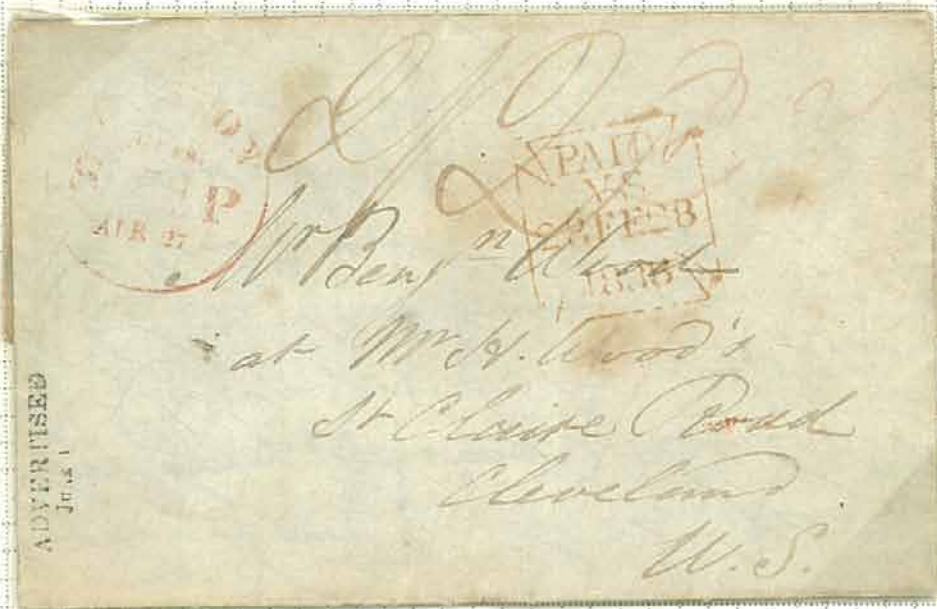 P
APR 27
PAID
22 FE 28
1838
Mr Benjn Wood
at Mr H. Wood's
St Claire Road
Cleveland
U. S.
ADVERTISED